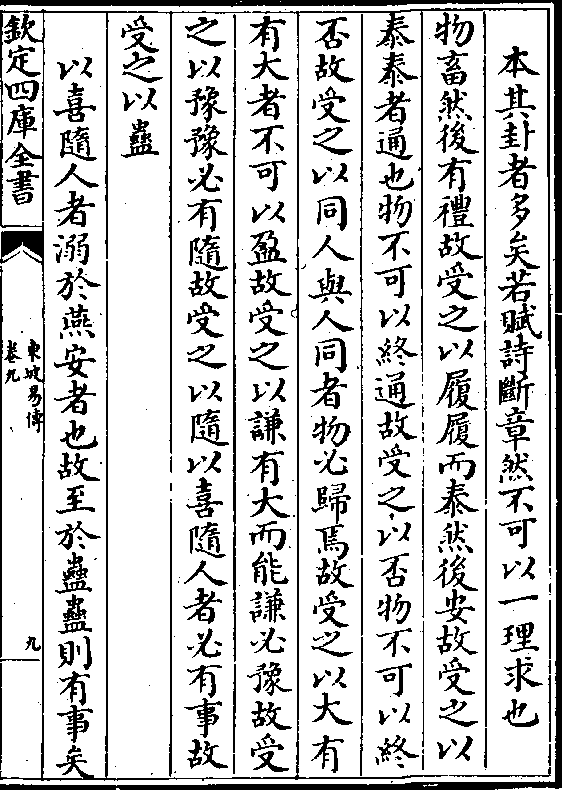 本其卦者多矣若賦詩斷章然不可以一理求也
物畜然後有禮故受之以履履而泰然後安故受之以
泰泰者通也物不可以終通故受之以否物不可以終
否故受之以同人與人同者物必歸焉故受之以大有
有大者不可以盈故受之以謙有大而能謙必豫故受
之以豫豫必有隨故受之以隨以喜隨人者必有事故
受之以蠱
以喜隨人者溺於燕安者也故至於蠱蠱則有事矣
欽定四庫全書
東坡易傳
卷九
九